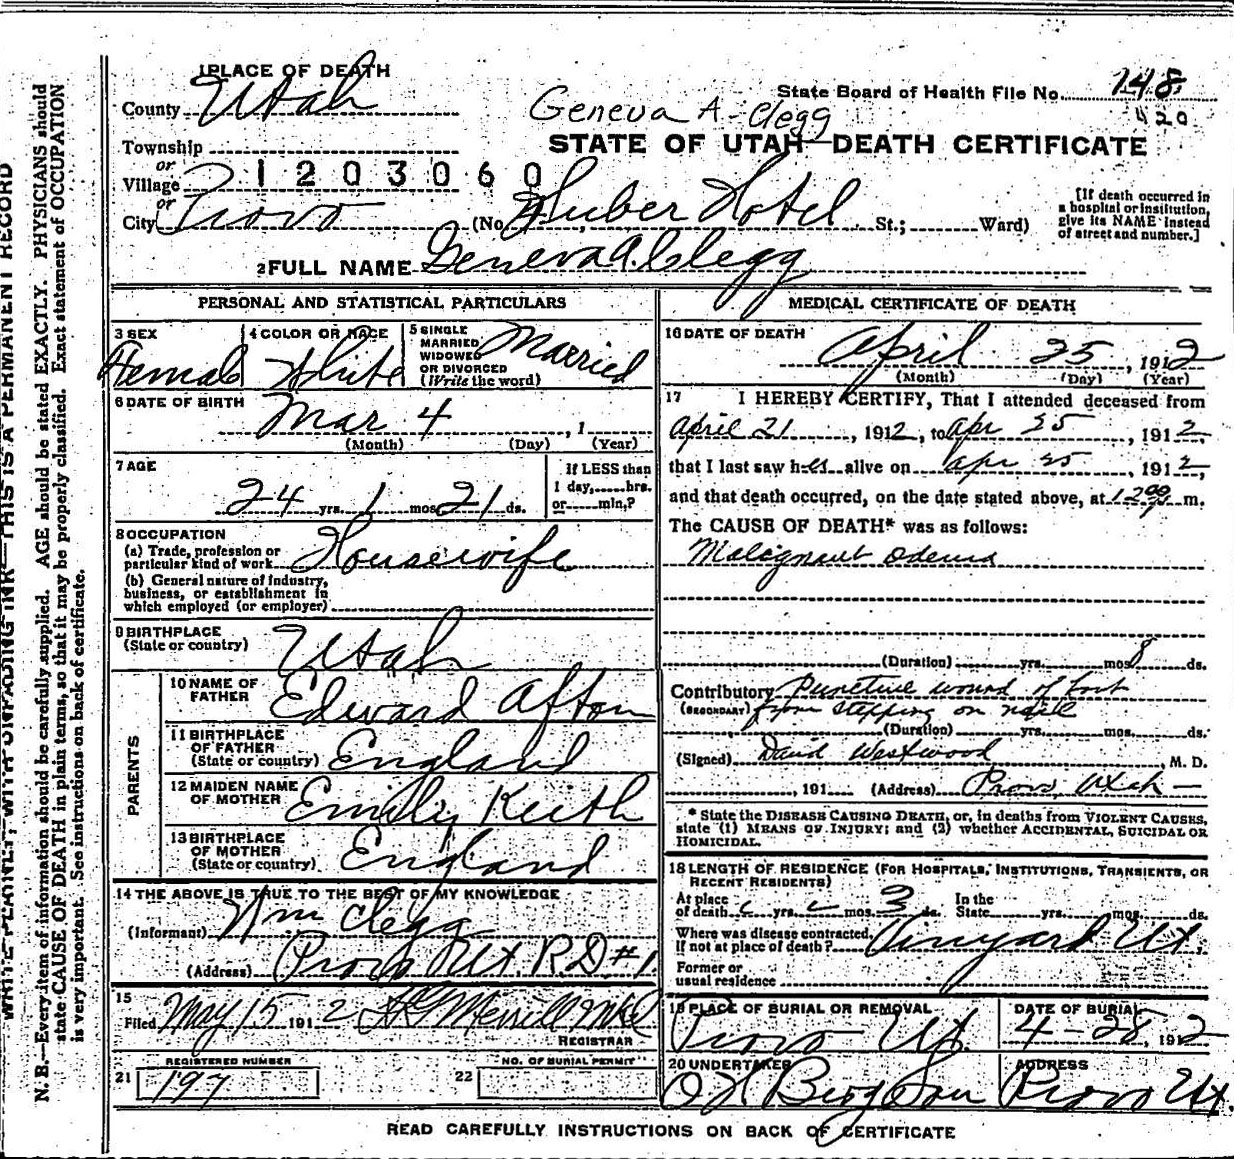 1 PLACE OF DEATH
County Utah
State Board of Health File No. 148
420
Geneva A. Clegg
STATE OF UTAH—DEATH CERTIFICATE
Township
or
Village
1203060
or
City Provo (No. Huber Hotel St.; Ward)
[If death occurred in
a hospital or institution,
give its NAME instead
of street and number.]
2 FULL NAME Geneva A. Clegg
PERSONAL AND STATISTICAL PARTICULARS
3 SEX
Female
4 COLOR OR RACE
White
5 SINGLE
MARRIED
WIDOWED
OR DIVORCED
(Write the word)
Married
6 DATE OF BIRTH
Mar 4, 1
(Month) (Day) (Year)
7 AGE
24 yrs. 1 mos. 21 ds.
If LESS than
1 day,......hrs.
or......min.?
8 OCCUPATION
(a) Trade, profession or
particular kind of work Housewife
(b) General nature of industry,
business, or establishment in
which employed (or employer)
9 BIRTHPLACE
(State or country) Utah
PARENTS
10 NAME OF
FATHER Edward Afton
11 BIRTHPLACE
OF FATHER
(State or country) England
12 MAIDEN NAME
OF MOTHER Emily Keith
13 BIRTHPLACE
OF MOTHER
(State or country) England
14 THE ABOVE IS TRUE TO THE BEST OF MY KNOWLEDGE
(Informant) Wm Clegg
(Address) Provo Ut. RD #1
15
Filed May 15 1912 Merrill
REGISTRAR
REGISTERED NUMBER
21 197
NO. OF BURIAL PERMIT
22
MEDICAL CERTIFICATE OF DEATH
16 DATE OF DEATH
April 25, 1912
(Month) (Day) (Year)
17 I HEREBY CERTIFY, That I attended deceased from
April 21, 1912, to Apr 25, 1912,
that I last saw her alive on Apr 25, 1912,
and that death occurred, on the date stated above, at m.
The CAUSE OF DEATH* was as follows:
Malignant odema
(Duration) yrs. mos. 8 ds.
Contributory Punctive wound of foot
(SECONDARY) from stepping on naile
(Duration) yrs. mos. ds.
(Signed) David Westwood, M. D.
, 191 (Address) Provo, Utah —
* State the DISEASE CAUSING DEATH, or, in deaths from VIOLENT CAUSES,
state (1) MEANS OF INJURY; and (2) whether ACCIDENTAL, SUICIDAL OR
HOMICIDAL.
18 LENGTH OF RESIDENCE (FOR HOSPITALS, INSTITUTIONS, TRANSIENTS, OR
RECENT RESIDENTS)
At place
of death yrs. mos. 3 ds.
In the
State yrs. mos. ds.
Where was disease contracted,
If not at place of death? Vinyard Ut.
Former or
usual residence
19 PLACE OF BURIAL OR REMOVAL
Provo Ut.
DATE OF BURIAL
4-28, 1912
20 UNDERTAKER
Berg Son
ADDRESS
Provo Ut.
READ CAREFULLY INSTRUCTIONS ON BACK OF CERTIFICATE
WRITE PLAINLY, WITH UNFADING INK—THIS IS A PERMANENT RECORD
N. B.—Every item of information should be carefully supplied. AGE should be stated EXACTLY. PHYSICIANS should
state CAUSE OF DEATH in plain terms, so that it may be properly classified. Exact statement of OCCUPATION
is very important. See instructions on back of certificate.